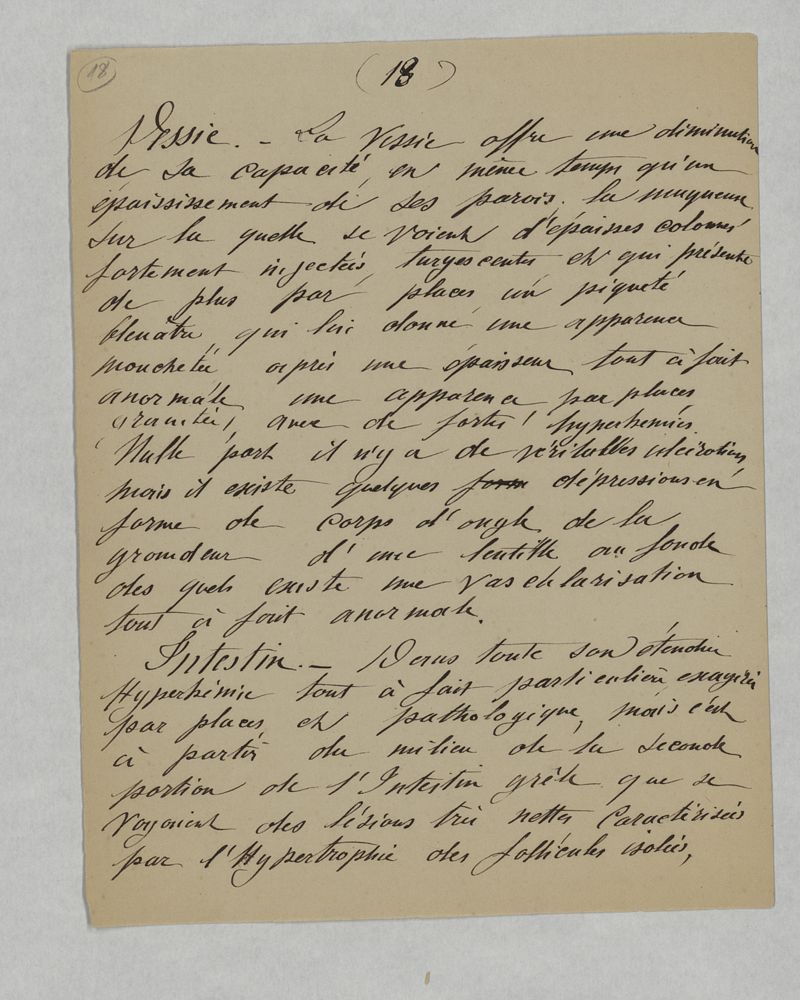 18
(18)
Vessie. - La Vessie offre une diminution
de sa capacité, en même temps qu'un
épaississement de ses parois. la muqueuse
sur la quelle se voient d'épaisses colonnes
fortement injectées, turgescentes et qui présente
de plus par places un piqueté
bleuâtre qui lui donne une apparence
mouchetée après une épaisseur tout à fait
anormale une apparence par places
, avec de fortes hyperhemies.
Nulle part il n'y a de véritables ulcérations,
mais il existe quelques form dépressions en
forme de corps d'ongle de la
grandeur d'une lentille au fond
des quels existe une vascularisation
tout à fait anormale.
Intestin. - Dans toute son étendue
Hyperhémie tout à fait particulière, exagérée
par places et pathologique, mais c'est
à partir du milieu de la seconde
portion de l'Intestin grêle que se
voyaient des lésions très nettes caractérisées
par l'Hypertrophie des follicules isolés,